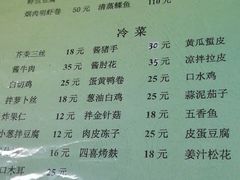 烟肉明虾卷 50元 清蒸鲽鱼 110元
冷菜
芥菜三丝 18元 酱猪手 30元 黄瓜蜇皮
酱牛肉 35元 酱肘花 35元 凉拌拉皮
白切鸡 25元 蛋黄鸭卷 25元 口水鸡
拌萝卜丝 18元 葱油白鸡 25元 蒜泥茄子
炸果仁 12元 拌金针菇 18元 五香鱼
小葱拌豆腐 12元 肉皮冻子 25元 皮蛋豆腐
16元 四喜烤麸 18元 姜汁松花
口木耳 25元